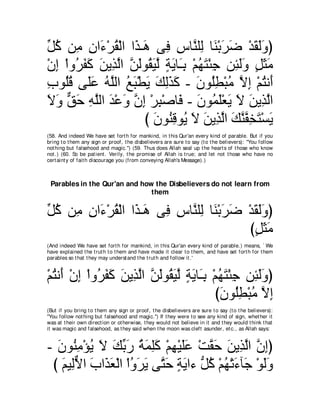 وَلَقَدْ ضَرَبْنَا لِلنَّاسِ فِى هَـذَا الْقُرْءَانِ مِن كُلِّ
مَثَلٍ وَلَئِن جِئْتَهُمْ بِـَايَةٍ لَّيَقُولَنَّ الَّذِينَ كَفَرُواْ إِنْ
أَنتُمْ إِلاَّ مُبْطِلُونَ - كَذَلِكَ يَطْبَعُ اللَّهُ عَلَى قُلُوبِ
الَّذِينَ لاَ يَعْلَمُونَ - فَاصْبِرْ إِنَّ وَعْدَ اللَّهِ حَقٌّ وَلاَ
يَسْتَخِفَّنَّكَ الَّذِينَ لاَ يُوقِنُونَ
(58. And indeed We have set forth for mankind, in this Qur'an every kind of parable. But if you
bring to them any sign or proof, the disbelievers are sure to say (to the believers): "You follow
nothing but falsehood and magic.") (59. Thus does Allah seal up the hearts of those who know
not.) (60. So be patient. Verily, the promise of Allah is true; and let not those who have no
certainty of faith discourage you (from conveying Allah's Message).)
Parables in the Qur'an and how the Disbelievers do not learn from
them
وَلَقَدْ ضَرَبْنَا لِلنَّاسِ فِى هَـذَا الْقُرْءَانِ مِن كُلِّ
مَثَلٍ
(And indeed We have set forth for mankind, in this Qur'an every kind of parable.) means, `We
have explained the truth to them and have made it clear to them, and have set forth for them
parables so that they may understand the truth and follow it.'
وَلَئِن جِئْتَهُمْ بِـَايَةٍ لَّيَقُولَنَّ الَّذِينَ كَفَرُواْ إِنْ أَنتُمْ
إِلاَّ مُبْطِلُونَ
(But if you bring to them any sign or proof, the disbelievers are sure to say (to the believers):
"You follow nothing but falsehood and magic.") If they were to see any kind of sign, whether it
was at their own direction or otherwise, they would not believe in it and they would think that
it was magic and falsehood, as they said when the moon was cleft asunder, etc., as Allah says:
إِنَّ الَّذِينَ حَقَّتْ عَلَيْهِمْ كَلِمَةُ رَبِّكَ لاَ يُؤْمِنُونَ -
وَلَوْ جَآءَتْهُمْ كُلُّ ءايَةٍ حَتَّى يَرَوُاْ الْعَذَابَ الاٌّلِيمَ